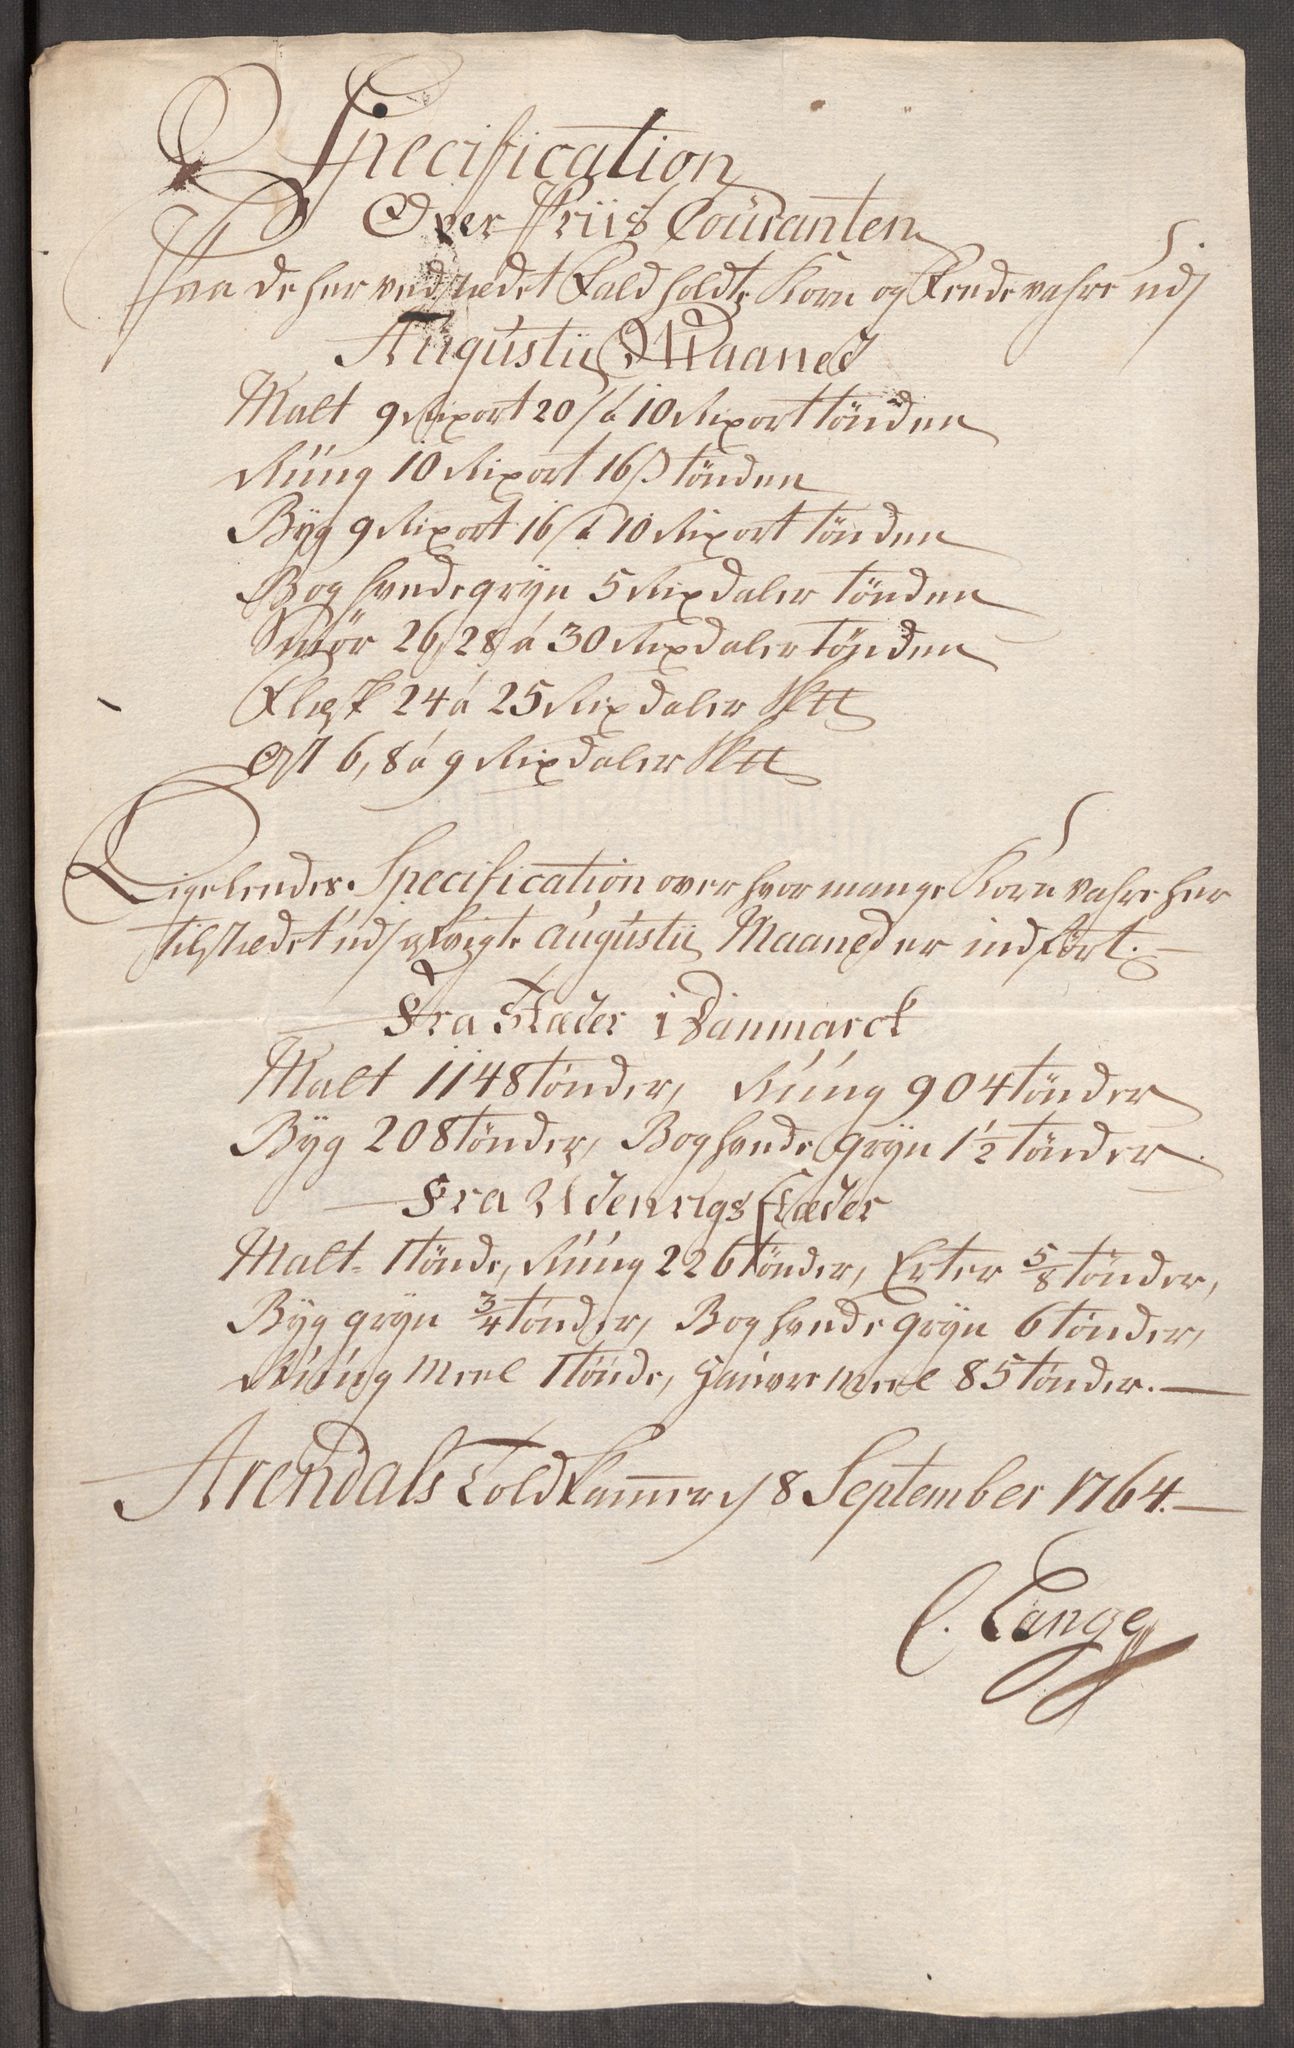 Specification
Over Priis Couranten
Paa de her ved stædet fald holdte Korn og Fendevahre udj
Augustij Maaned
Malt 9 Rixort 20 ß á 10 Rixort tönden
Rúúg 10 Rixort 16 ß tönden
Byg 9 Rixort 16 ß á 10 Rixort tönden
Boghvedegryn 5 Rixdaler tönden
Smör 26, 28 á 30 Rixdaler tönden
Flesk 24 á 25 Rixdaler Sktt
Ost 6, 8 á 9 Rixdaler Sktt
Ligeledes Specification over hvor mange Korn vahre her
til stædet udj afvigte Augustij Maaned er indfört.
Fra Stæder i Danmarck
Malt 1148 tönder, Rúúg 904 tönder
Byg 208 tönder, Boghvede gryn 1 1/2 tönder
Fra Udenrigs Stæder
Malt 1 tönde, Rúúg 226 tönder, Erter 5/8 tönder,
Byg gryn 3/4 tönder, Boghvede gryn 6 tönder,
Rúúg Meel 1 tönde, Haúvre Meel 85 tönder.
Arendals Toldkammer 8 September 1764.
C. Lange